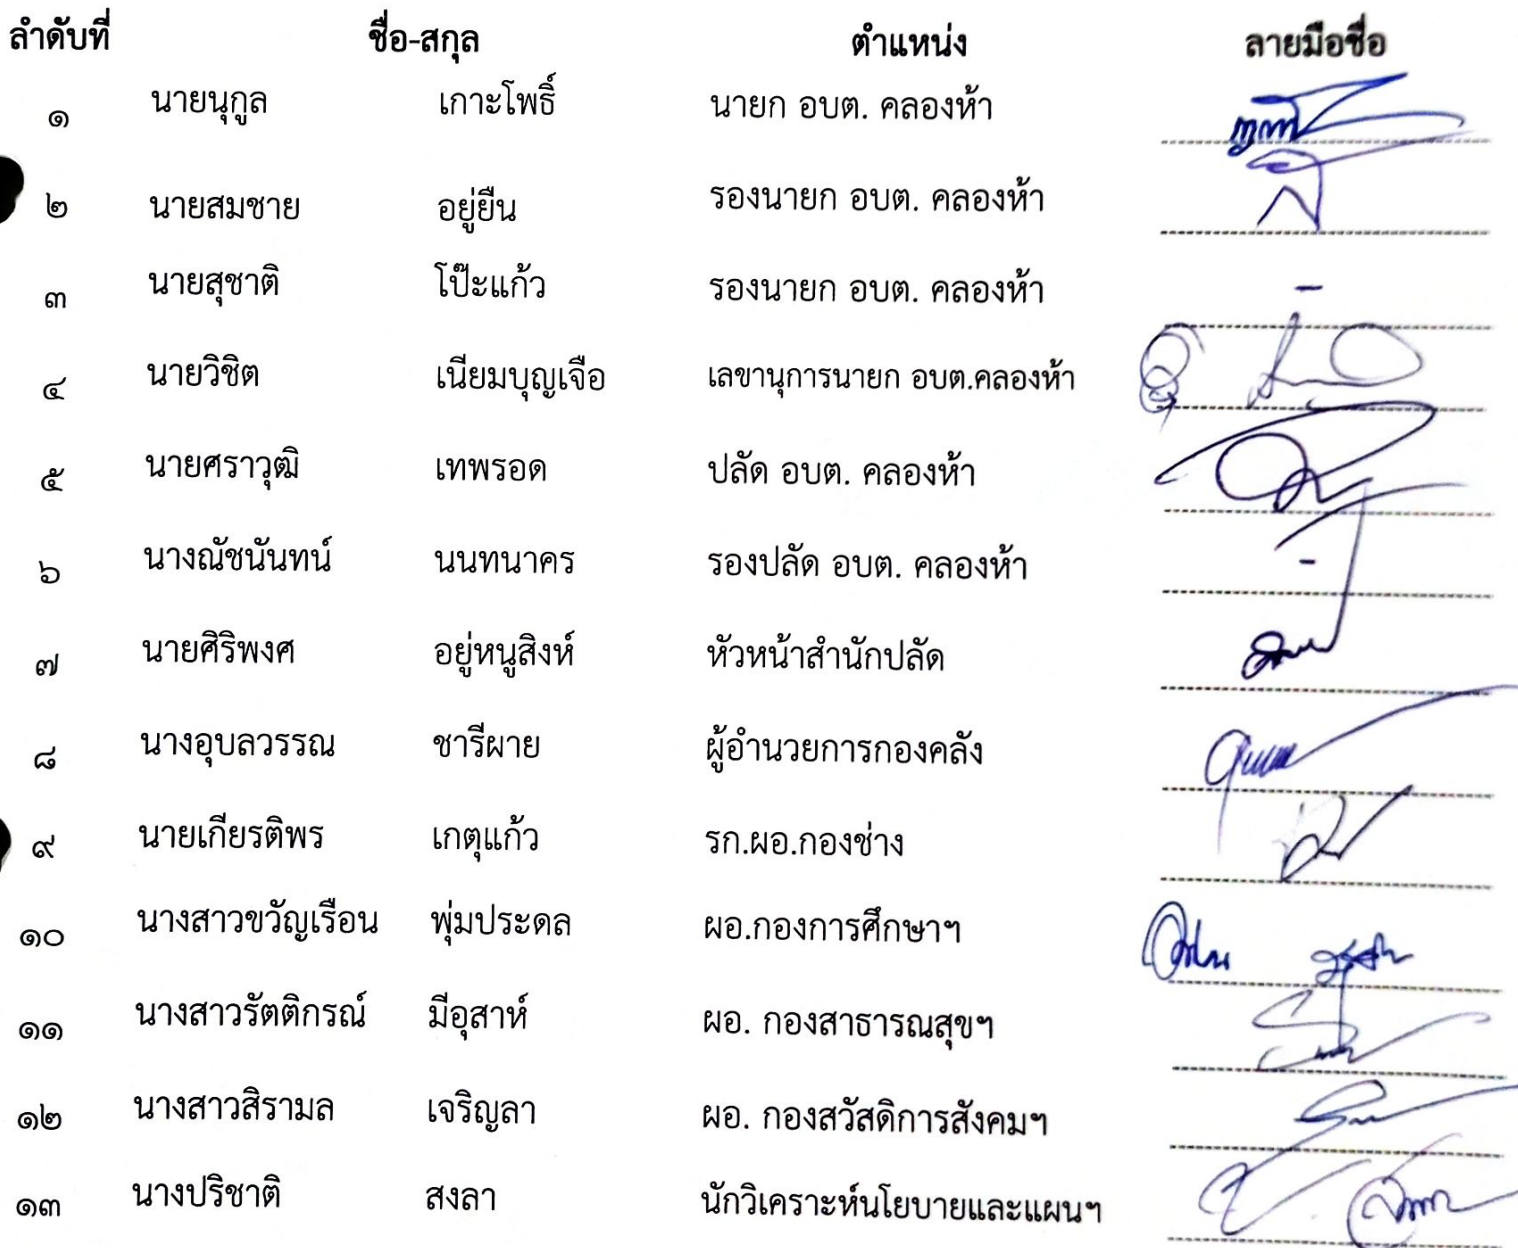 ลำดับที่ ชื่อ-สกุล ตำแหน่ง ลายมือชื่อ
๑ นายนุกูล เกาะโพธิ์ นายก อบต. คลองห้า
๒ นายสมชาย อยู่ยืน รองนายก อบต. คลองห้า
๓ นายสุชาติ โป๊ะแก้ว รองนายก อบต. คลองห้า -
๔ นายวิชิต เนียมบุญเจือ เลขานุการนายก อบต.คลองห้า
๕ นายศราวุฒิ เทพรอด ปลัด อบต. คลองห้า
๖ นางณัชนันทน์ นนทนาคร รองปลัด อบต. คลองห้า -
๗ นายศิริพงศ อยู่หนูสิงห์ หัวหน้าสำนักปลัด
๘ นางอุบลวรรณ ชารีผาย ผู้อำนวยการกองคลัง
๙ นายเกียรติพร เกตุแก้ว รก.ผอ.กองช่าง
๑๐ นางสาวขวัญเรือน พุ่มประดล ผอ.กองการศึกษาฯ
๑๑ นางสาวรัตติกรณ์ มีอุสาห์ ผอ. กองสาธารณสุขฯ
๑๒ นางสาวสิรามล เจริญลา ผอ. กองสวัสดิการสังคมฯ
๑๓ นางปริชาติ สงลา นักวิเคราะห์นโยบายและแผนฯ